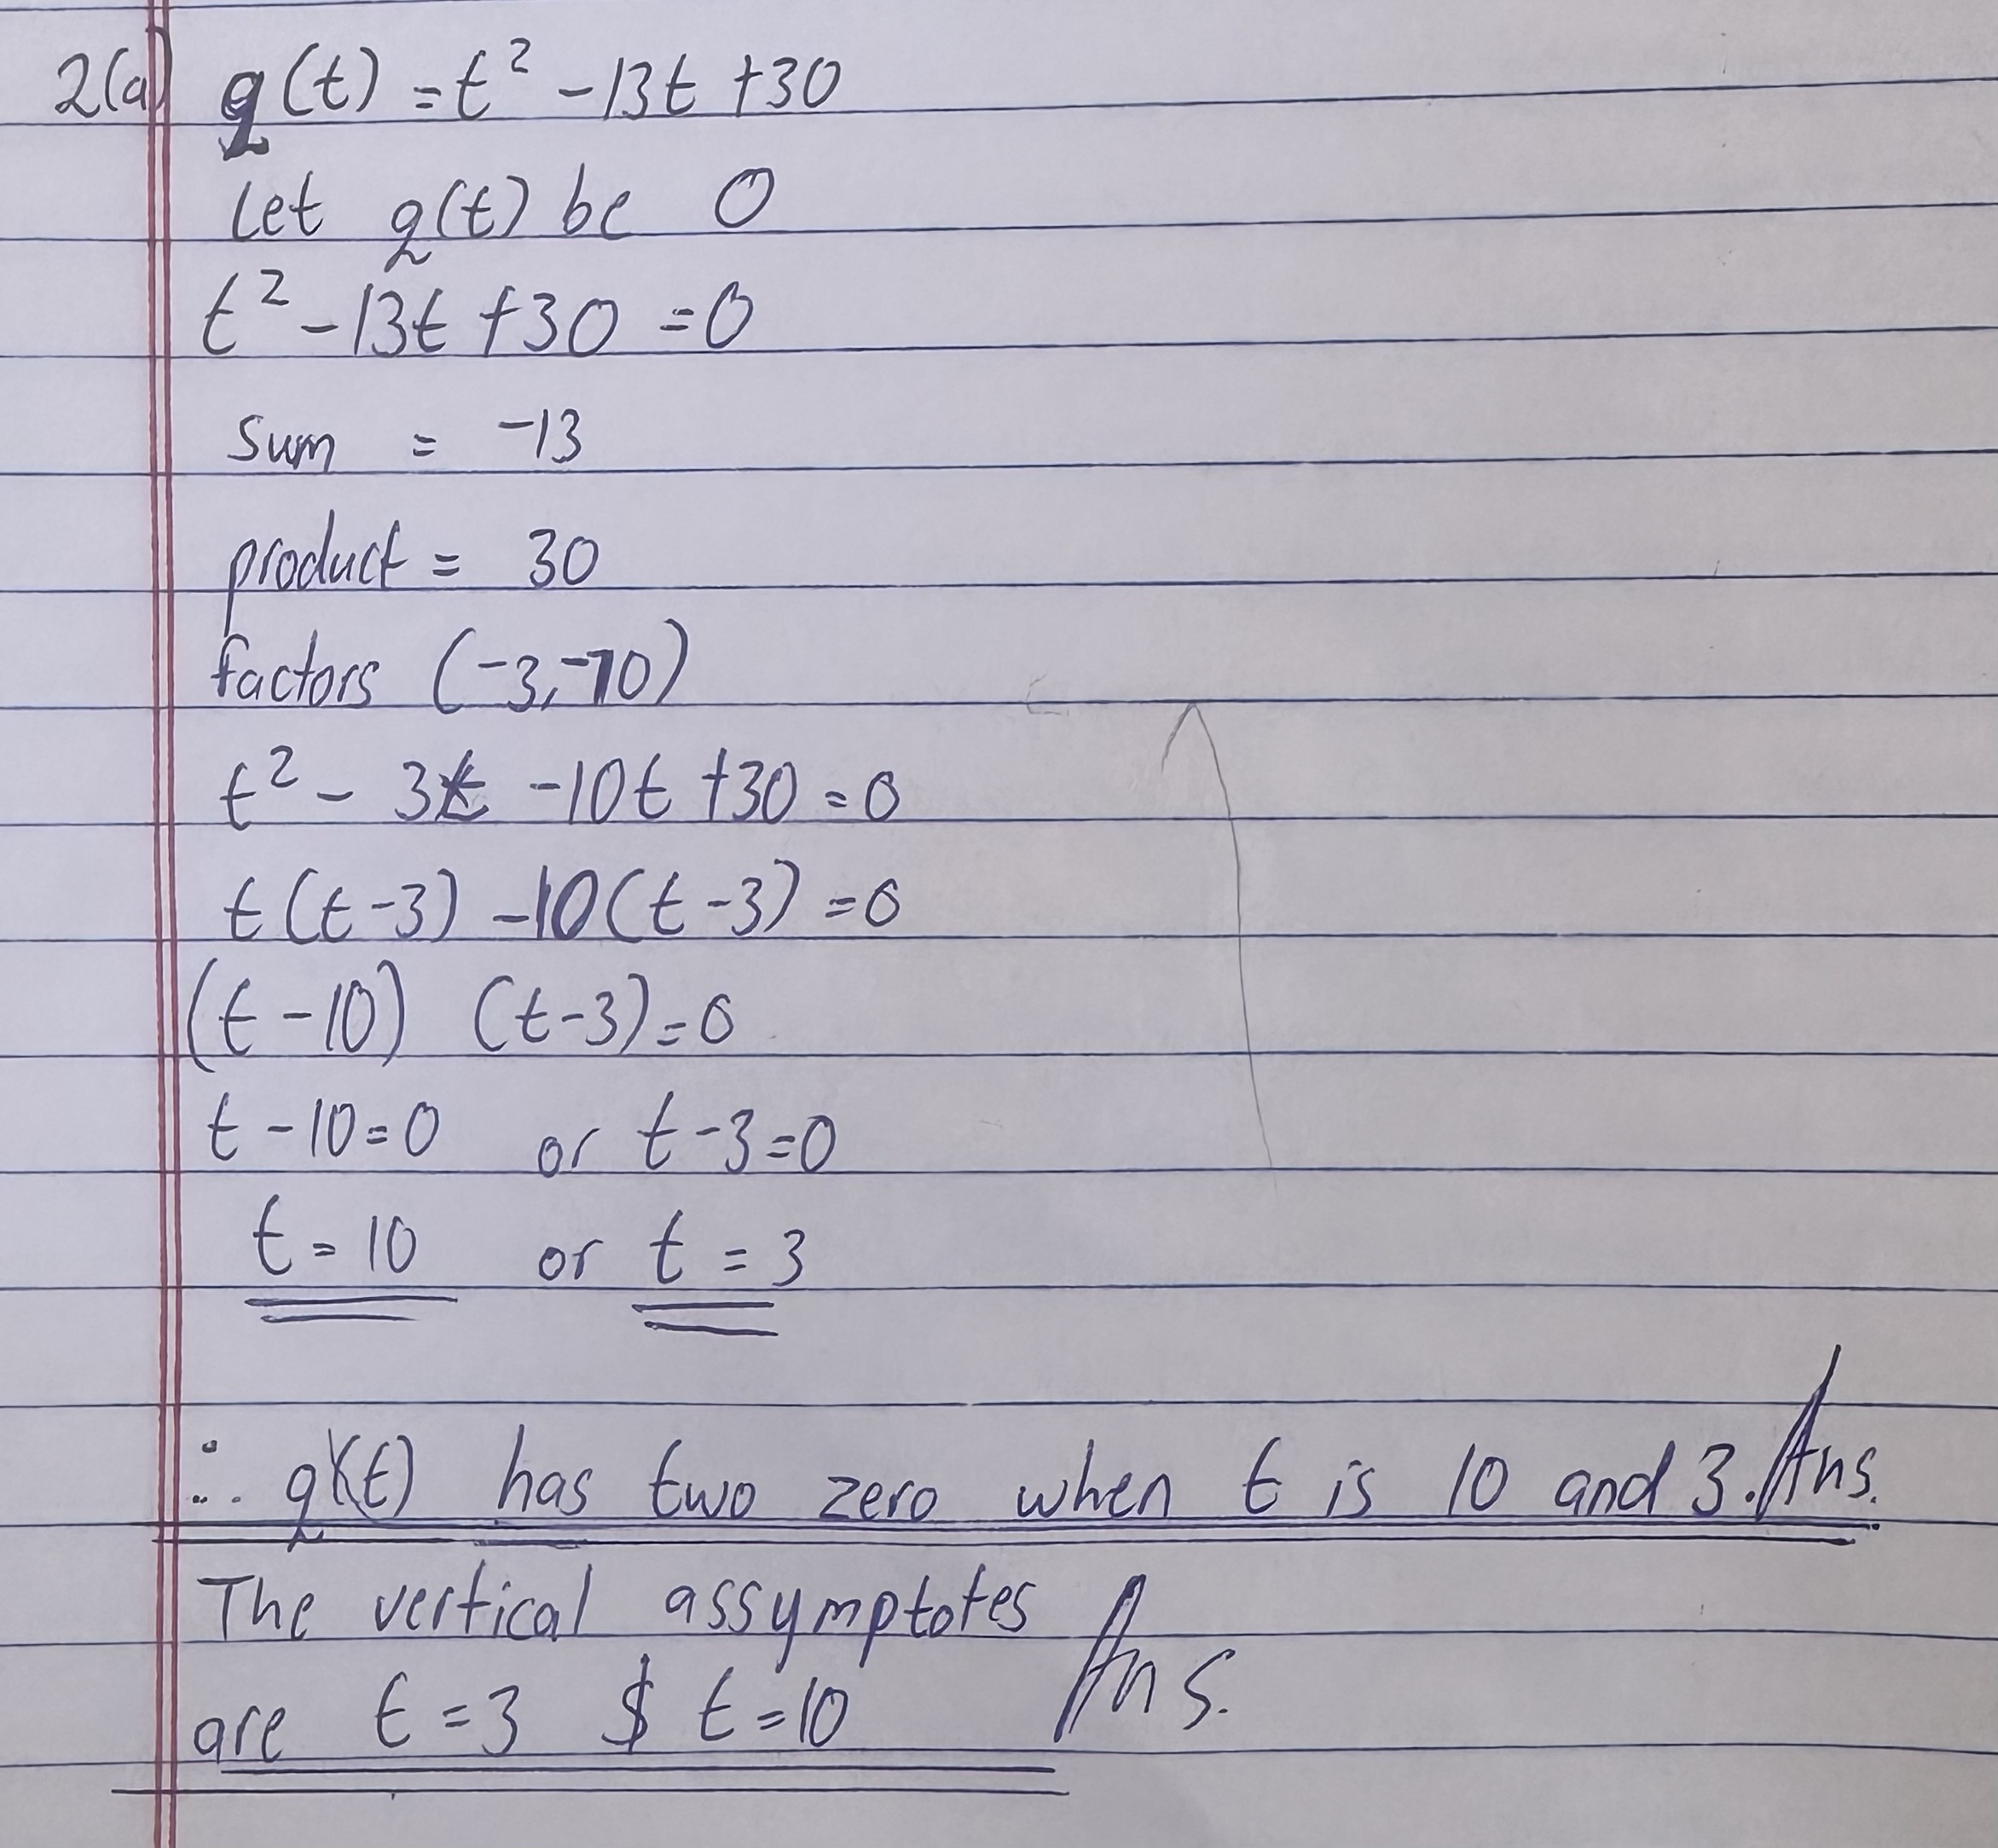 2(a) q(t) = t² - 13t + 30
Let q(t) be 0
t² - 13t + 30 = 0
sum = -13
product = 30
factors (-3, -10)
t² - 3t - 10t + 30 = 0
t(t-3) - 10(t-3) = 0
(t-10) (t-3) = 0
t - 10 = 0 or t - 3 = 0
t = 10 or t = 3
∴ q(t) has two zero when t is 10 and 3. Ans.
The vertical assymptotes
are t = 3 $ t = 10 Ans.